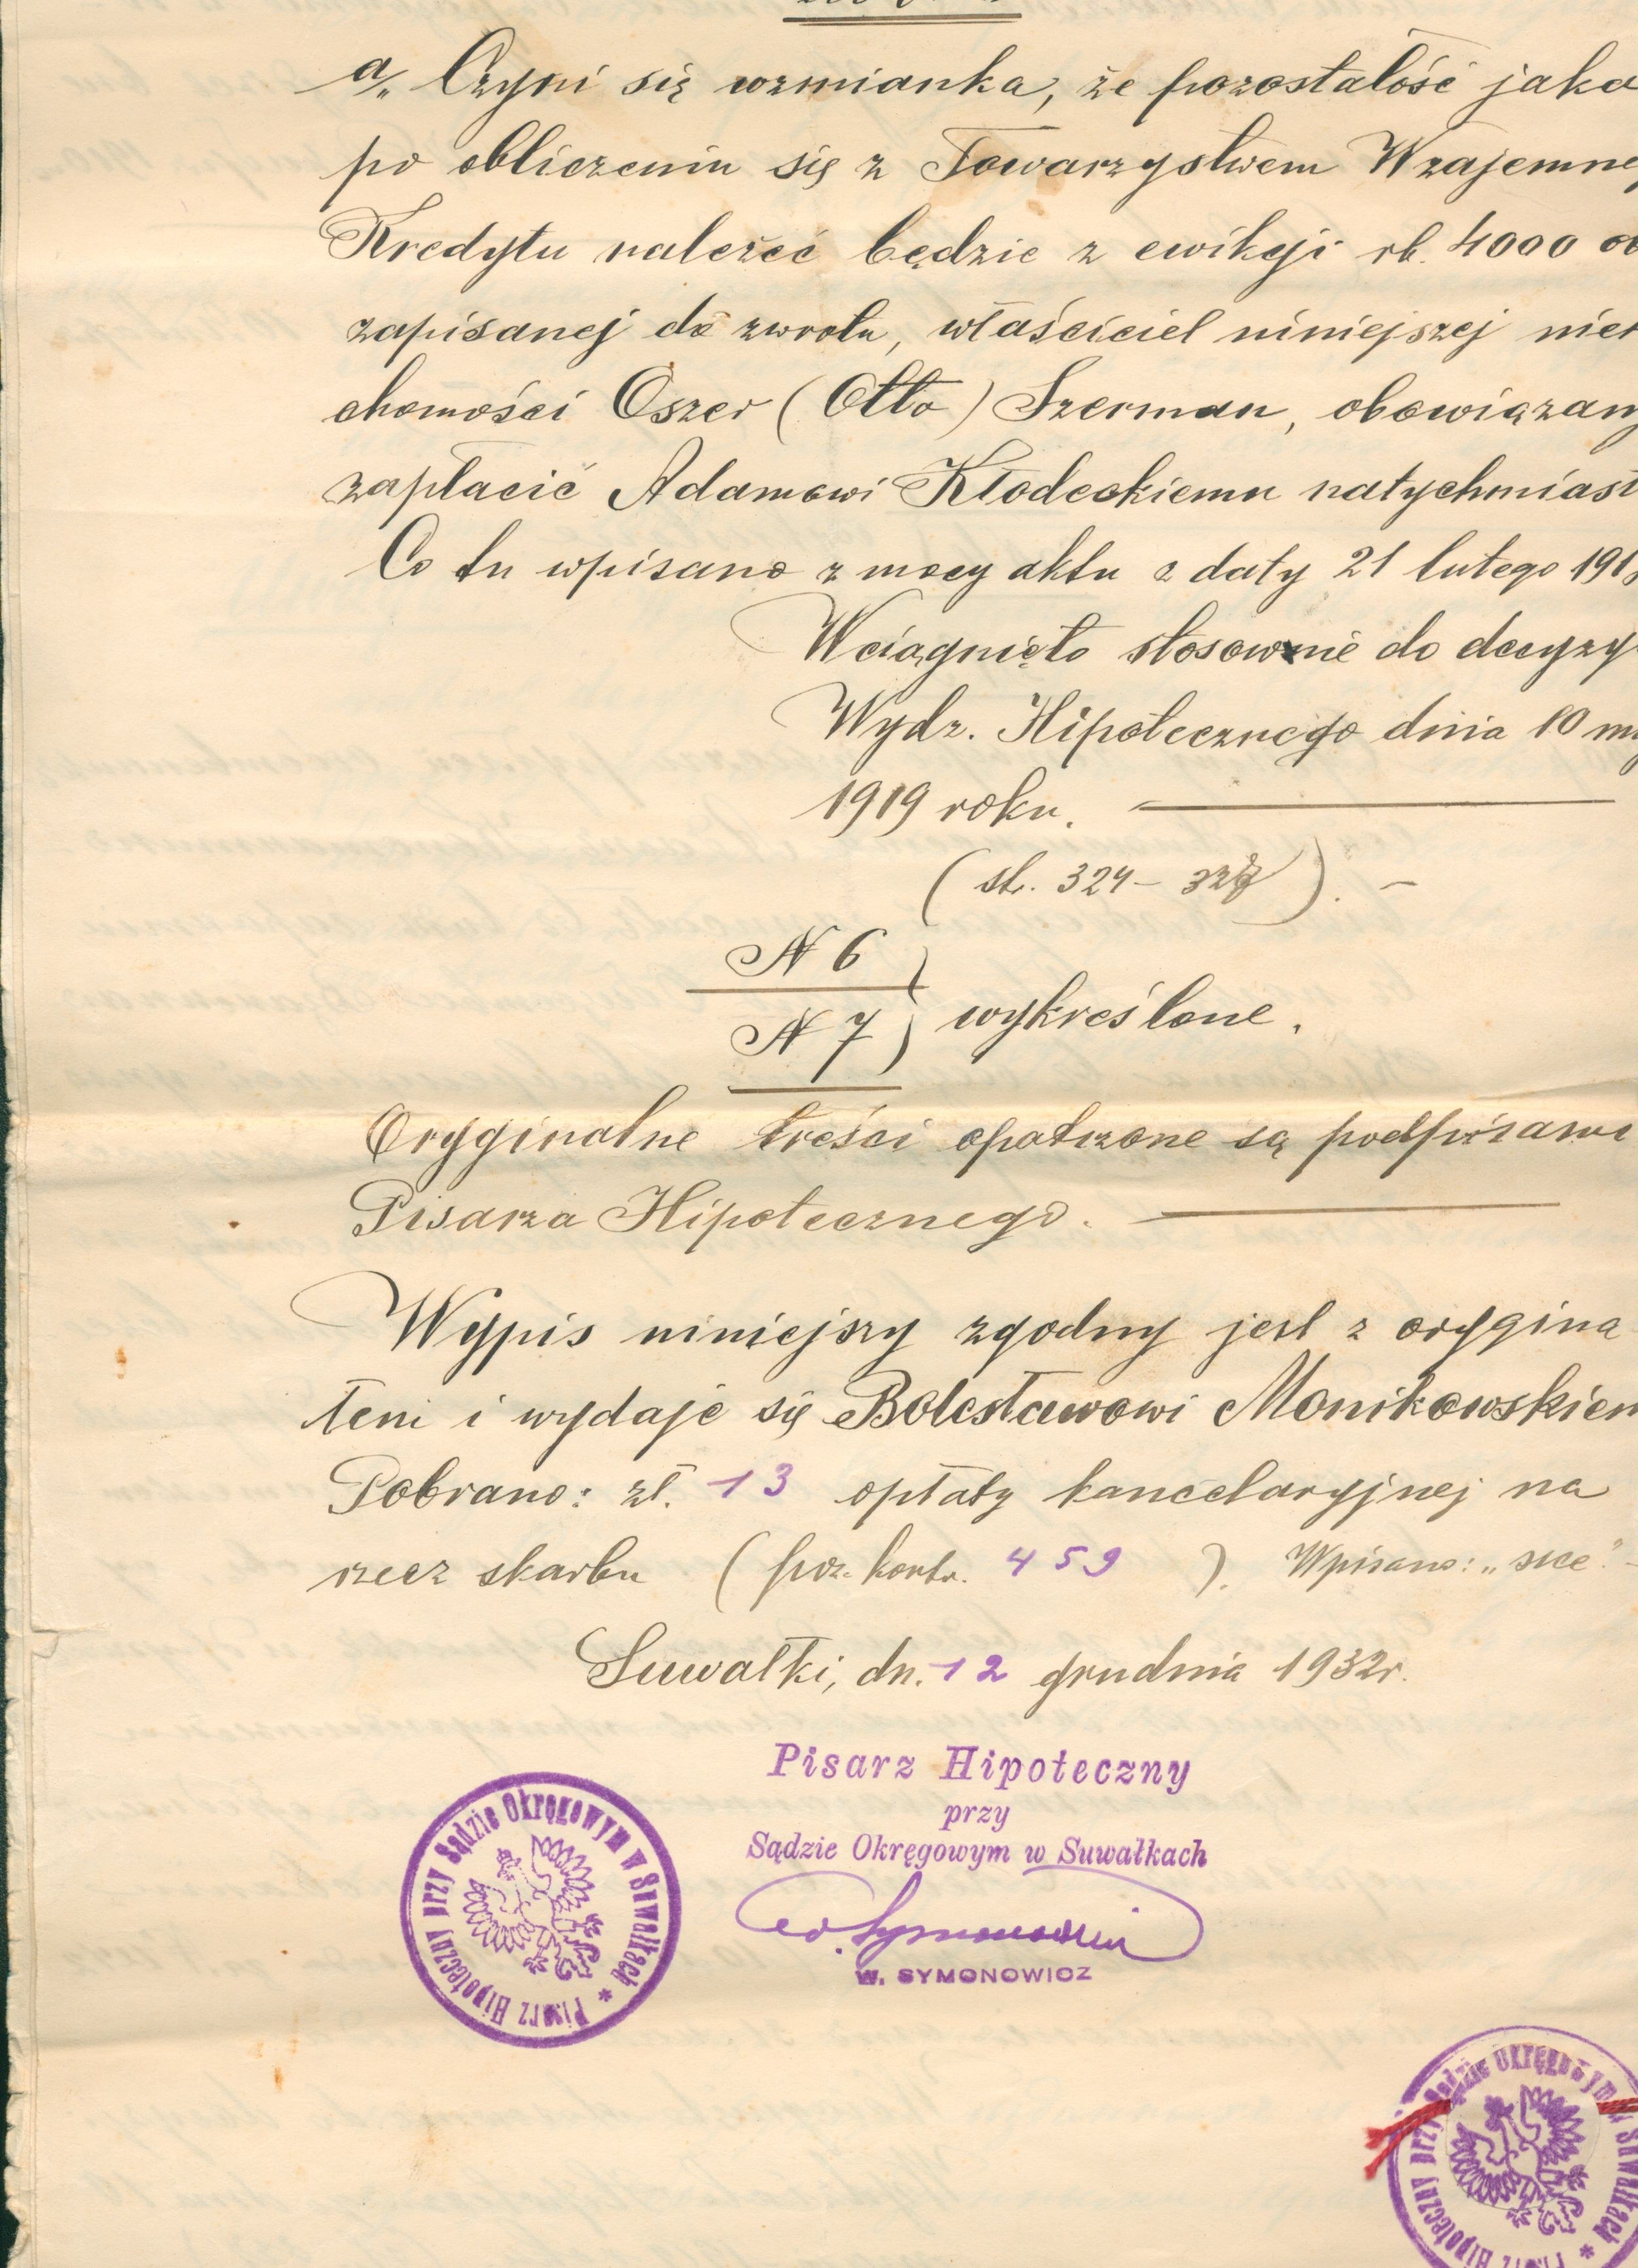 a„ Czyni się wzmianka, że pozostałość jaka
po obliczeniu się z Towarzystwem Wzajemne
Kredytu należeć będzie z ewikcji rb. 4000
zapisanej do zwrotu, właściciel niniejszej nier
chomości Oszer (Otto) Szerman, obowiązany
zapłacić Adamowi Kłodeckiemu natychmiast
Co tu wpisano z mocy aktu z daty 21 lutego 191
Wciągnięto stosownie do decyzy
Wydz. Hipotecznego dnia 10
1919 roku.
(st. 324 – ). –
N 6
N 7 wykreślone.
Oryginalne treści opatrzone są podpisami
Pisarza Hipotecznego.
Wypis niniejszy zgodny jest z orygina
łem i wydaje się Bolesławowi Monikowskiem
Pobrano: zł. 13 opłaty kancelaryjnej na
rzecz skarbu (poz. kontr. 459 ). Wpisano:
Suwałki, dn. 12 grudnia 1932r.
Pisarz Hipoteczny
przy
Sądzie Okręgowym w Suwałkach
W. SYMONOWICZ
Pisarz Hipoteczny przy Sądzie Okręgowym w Suwałkach *
Pisarz Hipoteczny przy Sądzie Okręgowym w Suwałkach *